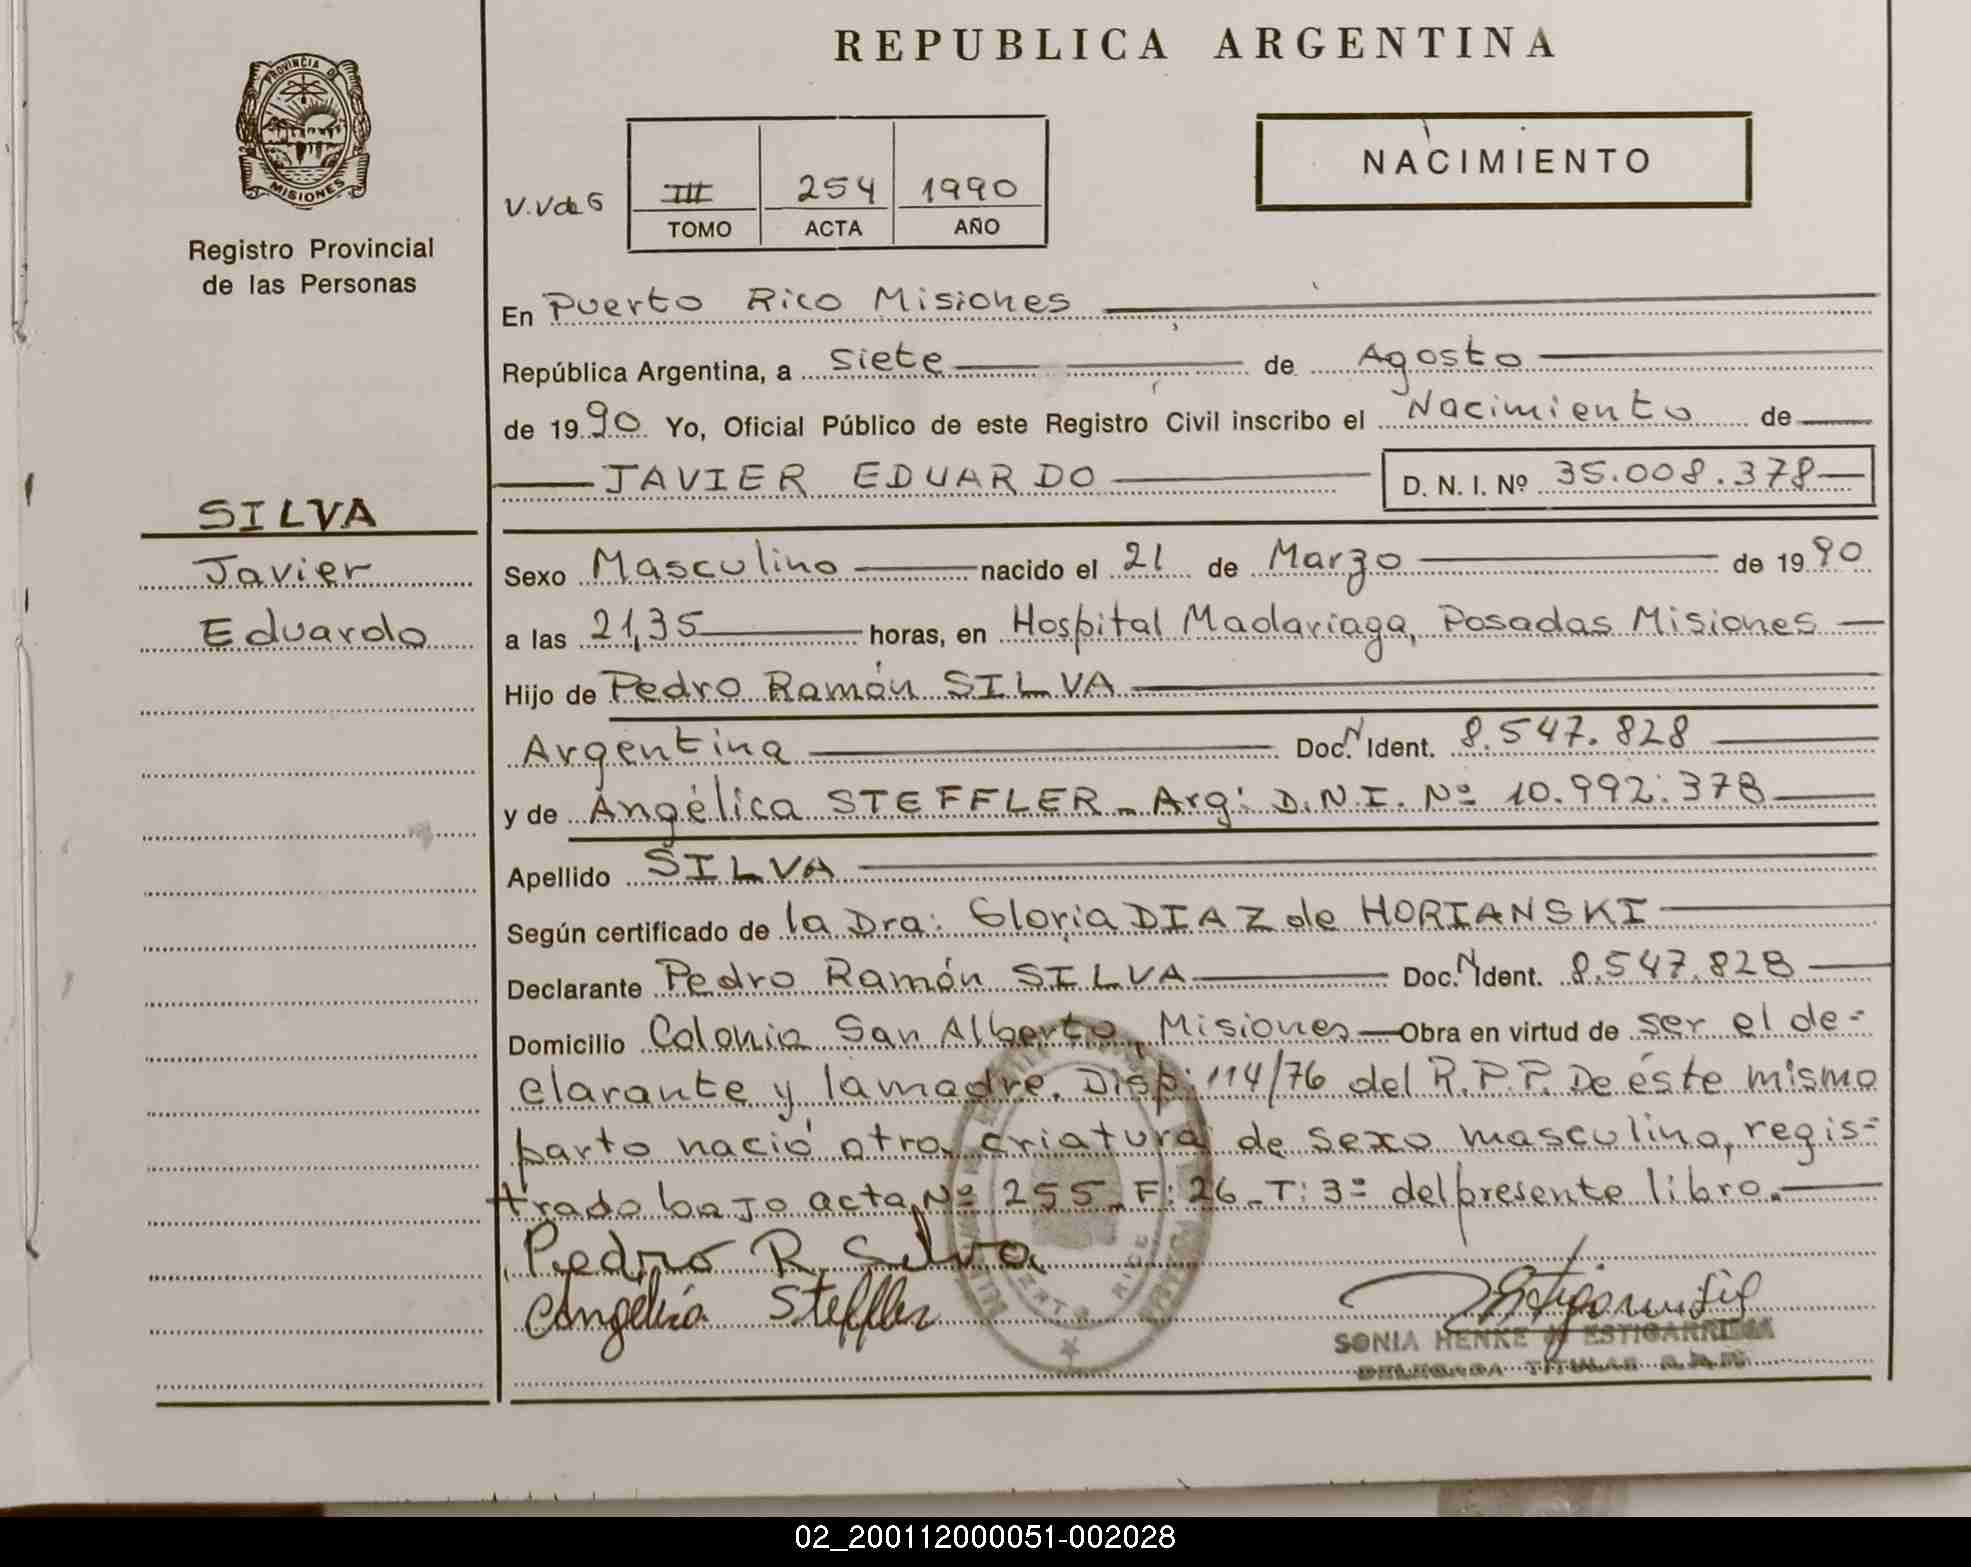 REPUBLICA ARGENTINA
PROVINCIA DE
MISIONES
Registro Provincial
de las Personas
NACIMIENTO
V.V de G
III 254 1990
TOMO ACTA AÑO
En Puerto Rico Misiones
República Argentina, a siete de Agosto
de 1990 Yo, Oficial Público de este Registro Civil inscribo el Nacimiento de
JAVIER EDUARDO D. N. I. Nº 35.008.378
SILVA
Javier
Eduardo
Sexo Masculino nacido el 21 de Marzo de 1990
a las 21,35 horas, en Hospital Madariaga, Posadas Misiones
Hijo de Pedro Ramón SILVA
Argentina Doc. N Ident. 8.547.828
y de Angélica STEFFLER - Arg: D.N.I. Nº 10.992.378
Apellido SILVA
Según certificado de la Dra: Gloria DIAZ de HORIANSKI
Declarante Pedro Ramón SILVA Doc. N Ident. 8.547.828
Domicilio Colonia San Alberto, Misiones Obra en virtud de ser el de=
clarante y la madre. Disp: 114/76 del R.P.P. De éste mismo
parto nació otra criatura de sexo masculino, regis=
trado bajo acta Nº 255. F: 26. T: 3º del presente libro.
Pedro R. Silva
Angélica Steffler
SONIA HENKE de ESTIGARRIBIA
DELEGADA TITULAR
02_200112000051-002028